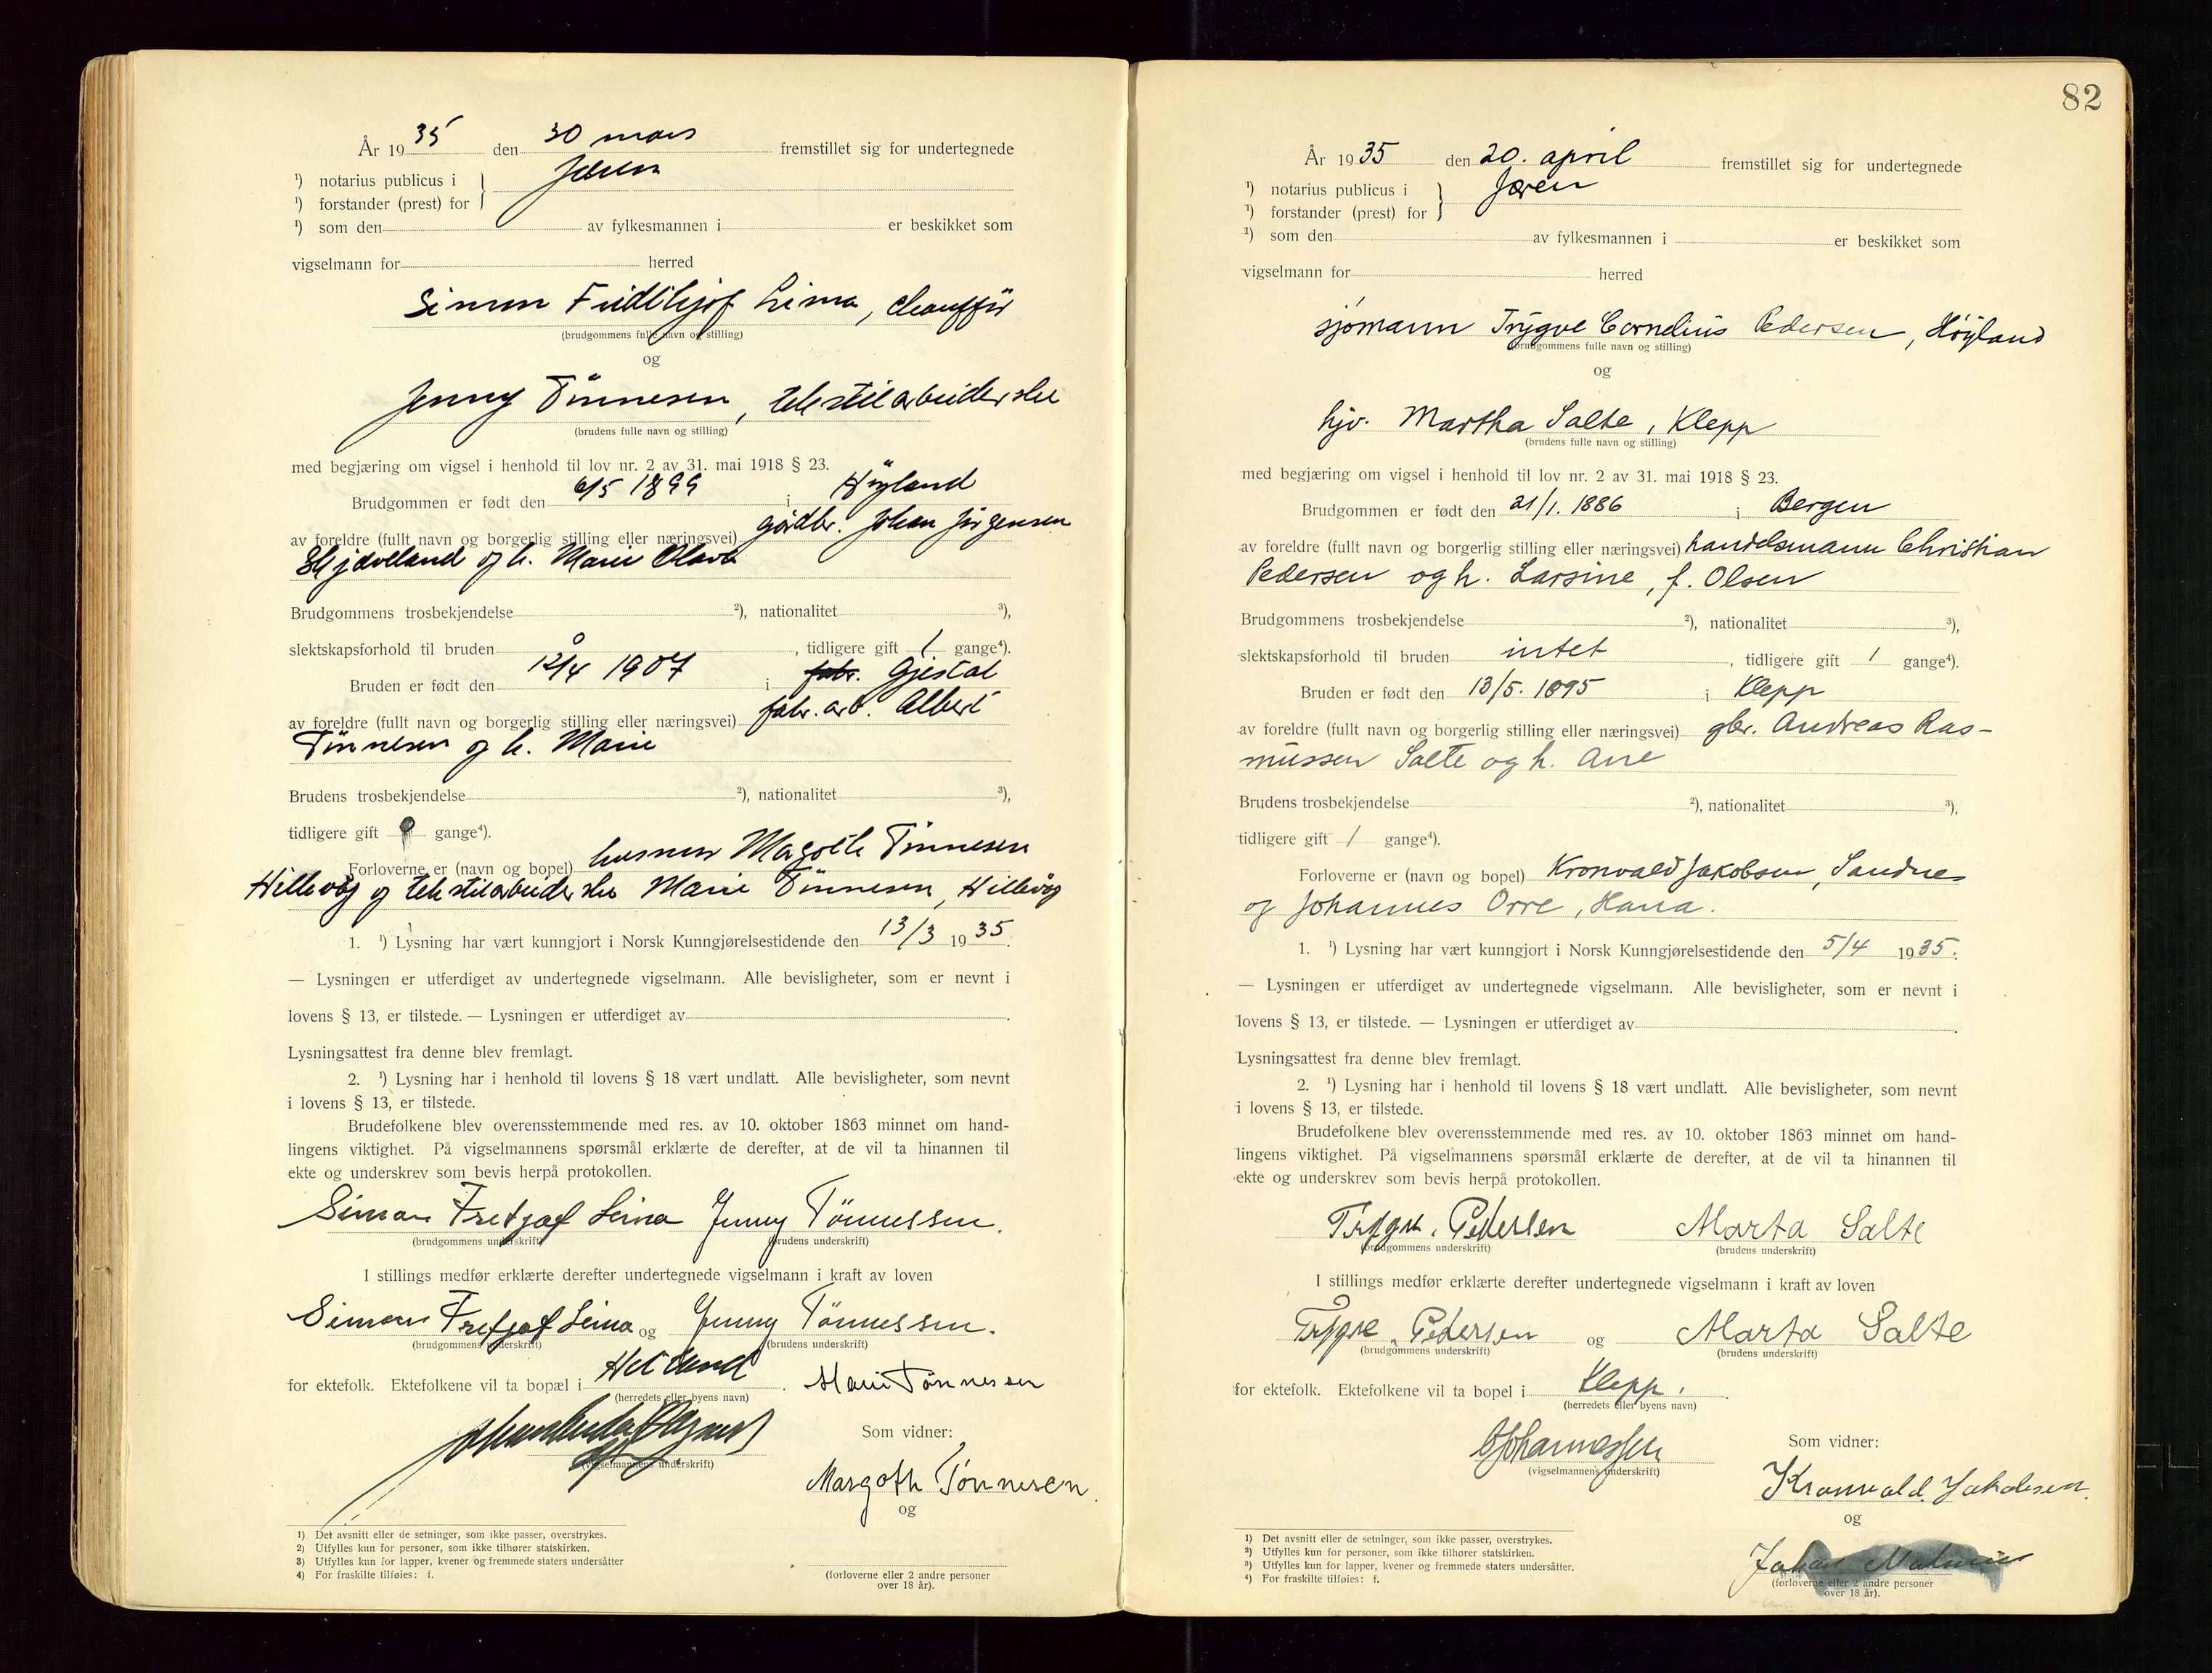 År 1935 den 30 mars fremstillet sig for undertegnede
¹) notarius publicus i } Jæren
¹) forstander (prest) for
¹) som den av fylkesmannen i er beskikket som
vigselmann for herred
Simon Fridthjof Lima, chauffør
(brudgommens fulle navn og stilling)
og
Jenny Tønnesen, tekstilarbeiderske
(brudens fulle navn og stilling)
med begjæring om vigsel i henhold til lov nr. 2 av 31. mai 1918 § 23.
Brudgommen er født den 6/5 1899 i Høyland
av foreldre (fullt navn og borgerlig stilling eller næringsvei) gårdbr. Johan Jørgensen
Skjævelland og h. Marie
Brudgommens trosbekjendelse ²), nationalitet ³),
slektskapsforhold til bruden 0, tidligere gift 1 gange⁴).
Bruden er født den 12/4 1907 i fabr. Gjestal
av foreldre (fullt navn og borgerlig stilling eller næringsvei) fabr. arb. Albert
Tønnesen og h. Marie
Brudens trosbekjendelse ²), nationalitet ³),
tidligere gift gange⁴).
Forloverne er (navn og bopel) Margoth Tønnesen
Hillevåg og tekstilarbeiderske Marie Tønnesen, Hillevåg
1. ¹) Lysning har vært kunngjort i Norsk Kunngjørelsestidende den 13/3 1935.
— Lysningen er utferdiget av undertegnede vigselmann. Alle bevisligheter, som er nevnt i
lovens § 13, er tilstede. — Lysningen er utferdiget av .
Lysningsattest fra denne blev fremlagt.
2. ¹) Lysning har i henhold til lovens § 18 vært undlatt. Alle bevisligheter, som nevnt
i lovens § 13, er tilstede.
Brudefolkene blev overensstemmende med res. av 10. oktober 1863 minnet om hand-
lingens viktighet. På vigselmannens spørsmål erklærte de derefter, at de vil ta hinannen til
ekte og underskrev som bevis herpå protokollen.
Simon Fretjof Lima Jenny Tönnessen.
(brudgommens underskrift) (brudens underskrift)
I stillings medfør erklærte derefter undertegnede vigselmann i kraft av loven
Simon Fretjof Lima og Jenny Tönnessen.
(brudgommens underskrift) (brudens underskrift)
for ektefolk. Ektefolkene vil ta bopæl i Hetland. Marie Tönnessen
(herredets eller byens navn)
Som vidner:
(vigselmannens underskrift)
Margoth Tönnesen
og
1) Det avsnitt eller de setninger, som ikke passer, overstrykes.
2) Utfylles kun for personer, som ikke tilhører statskirken.
3) Utfylles kun for lapper, kvener og fremmede staters undersåtter
4) For fraskilte tilføies: f.
(forloverne eller 2 andre personer
over 18 år).
82
År 1935 den 20. april fremstillet sig for undertegnede
¹) notarius publicus i } Jæren
¹) forstander (prest) for
¹) som den av fylkesmannen i er beskikket som
vigselmann for herred
sjømann Trygve Cornelius Pedersen, Høyland
(brudgommens fulle navn og stilling)
og
hjv. Martha Salte, Klepp
(brudens fulle navn og stilling)
med begjæring om vigsel i henhold til lov nr. 2 av 31. mai 1918 § 23.
Brudgommen er født den 21/1. 1886 i Bergen
av foreldre (fullt navn og borgerlig stilling eller næringsvei) handelsmann Christian
Pedersen og h. Larsine, f. Olsen
Brudgommens trosbekjendelse ²), nationalitet ³),
slektskapsforhold til bruden intet, tidligere gift 1 gange⁴).
Bruden er født den 13/5. 1895 i Klepp
av foreldre (fullt navn og borgerlig stilling eller næringsvei) gbr. Andreas Ras-
mussen Salte og h. Ane
Brudens trosbekjendelse ²), nationalitet ³),
tidligere gift 1 gange⁴).
Forloverne er (navn og bopel) Kronvald Jakobsen, Sandnes
og Johannes Orre, Hana.
1. ¹) Lysning har vært kunngjort i Norsk Kunngjørelsestidende den 5/4 1935.
— Lysningen er utferdiget av undertegnede vigselmann. Alle bevisligheter, som er nevnt i
lovens § 13, er tilstede. — Lysningen er utferdiget av .
Lysningsattest fra denne blev fremlagt.
2. ¹) Lysning har i henhold til lovens § 18 vært undlatt. Alle bevisligheter, som nevnt
i lovens § 13, er tilstede.
Brudefolkene blev overensstemmende med res. av 10. oktober 1863 minnet om hand-
lingens viktighet. På vigselmannens spørsmål erklærte de derefter, at de vil ta hinannen til
ekte og underskrev som bevis herpå protokollen.
Trygve. Pedersen Marta Salte
(brudgommens underskrift) (brudens underskrift)
I stillings medfør erklærte derefter undertegnede vigselmann i kraft av loven
Trygve. Pedersen og Marta Salte
(brudgommens underskrift) (brudens underskrift)
for ektefolk. Ektefolkene vil ta bopel i Klepp.
(herredets eller byens navn)
Johannessen Som vidner:
(vigselmannens underskrift)
Kronvald Jakobsen.
og
1) Det avsnitt eller de setninger, som ikke passer, overstrykes.
²) Utfylles kun for personer, som ikke tilhører statskirken.
³) Utfylles kun for lapper, kvener og fremmede staters undersåtter.
⁴) For fraskilte tilføies: f.
Johan
(forloverne eller 2 andre personer
over 18 år).